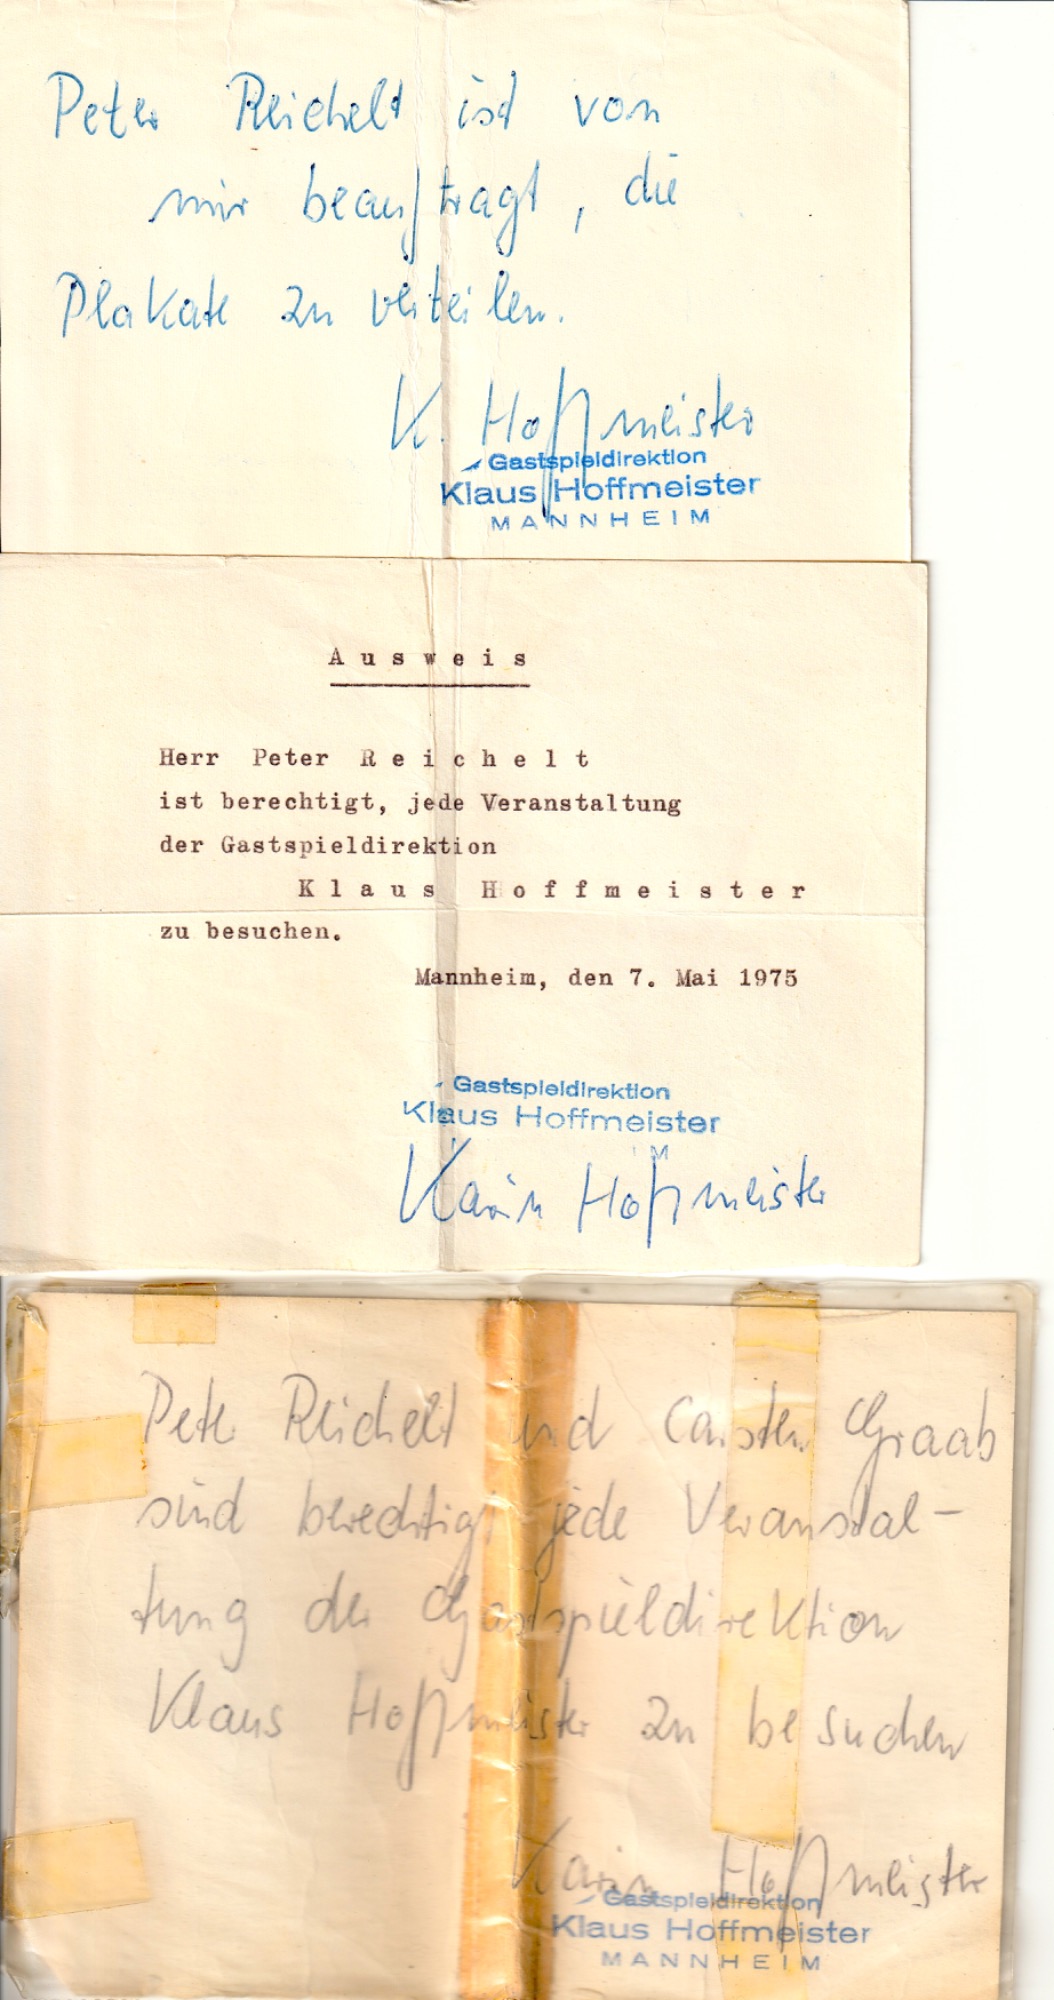 Peter Reichelt ist von
mir beauftragt, die
Plakate zu verteilen.
K. Hoffmeister
Gastspieldirektion
Klaus Hoffmeister
MANNHEIM
Ausweis
Herr Peter Reichelt
ist berechtigt, jede Veranstaltung
der Gastspieldirektion
Klaus Hoffmeister
zu besuchen.
Mannheim, den 7. Mai 1975
Gastspieldirektion
Klaus Hoffmeister
M
Karin Hoffmeister
Peter Reichelt und Carsten Graab
sind berechtigt jede Veranstal-
tung der Gastspieldirektion
Klaus Hoffmeister zu besuchen
Karin Hoffmeister
Gastspieldirektion
Klaus Hoffmeister
MANNHEIM